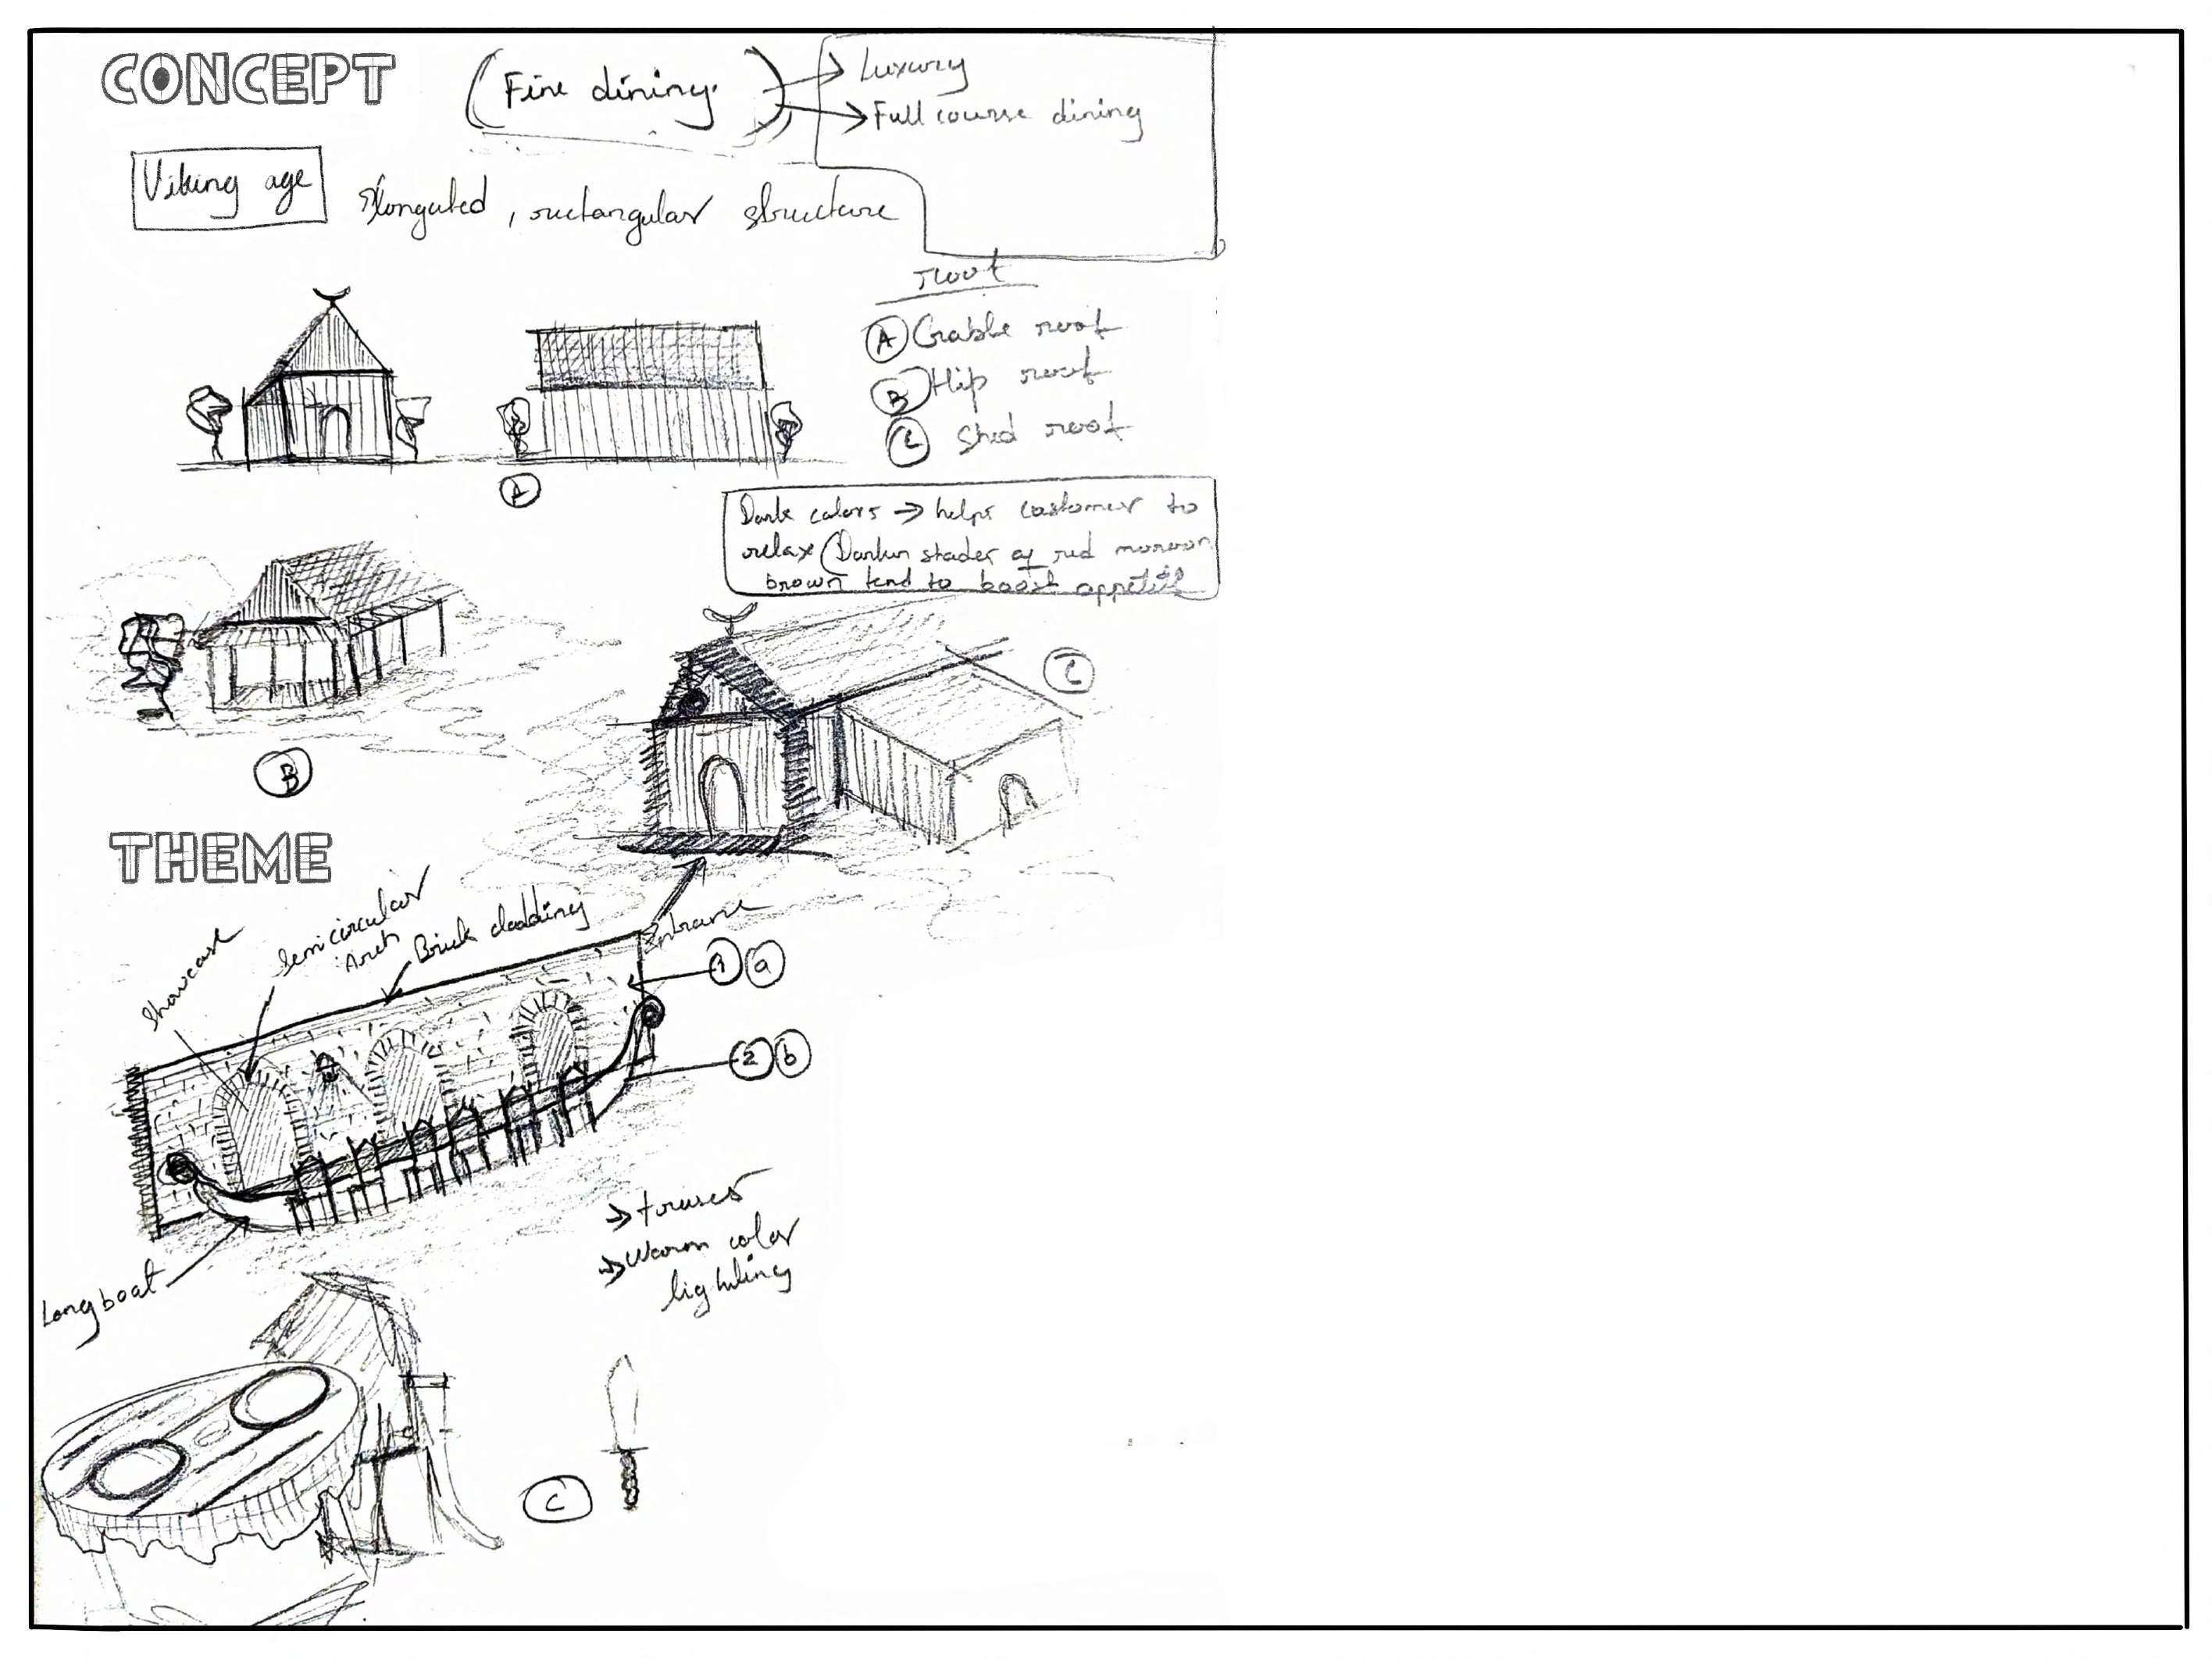 CONCEPT
(Fine dining)
Luxury
Full course dining
Viking age
Elongated, rectangular structure
roof
A Gable roof
B Hip roof
C Shed roof
A
Dark colors → helps customer to
relax (Darker shades of red maroon
brown tend to boost appetite
C
B
THEME
Showcase
Semi circular
Arch
Brick cladding
Entrance
1 a
2 b
Longboat
→ Trusses
→ Warm color
lighting
C